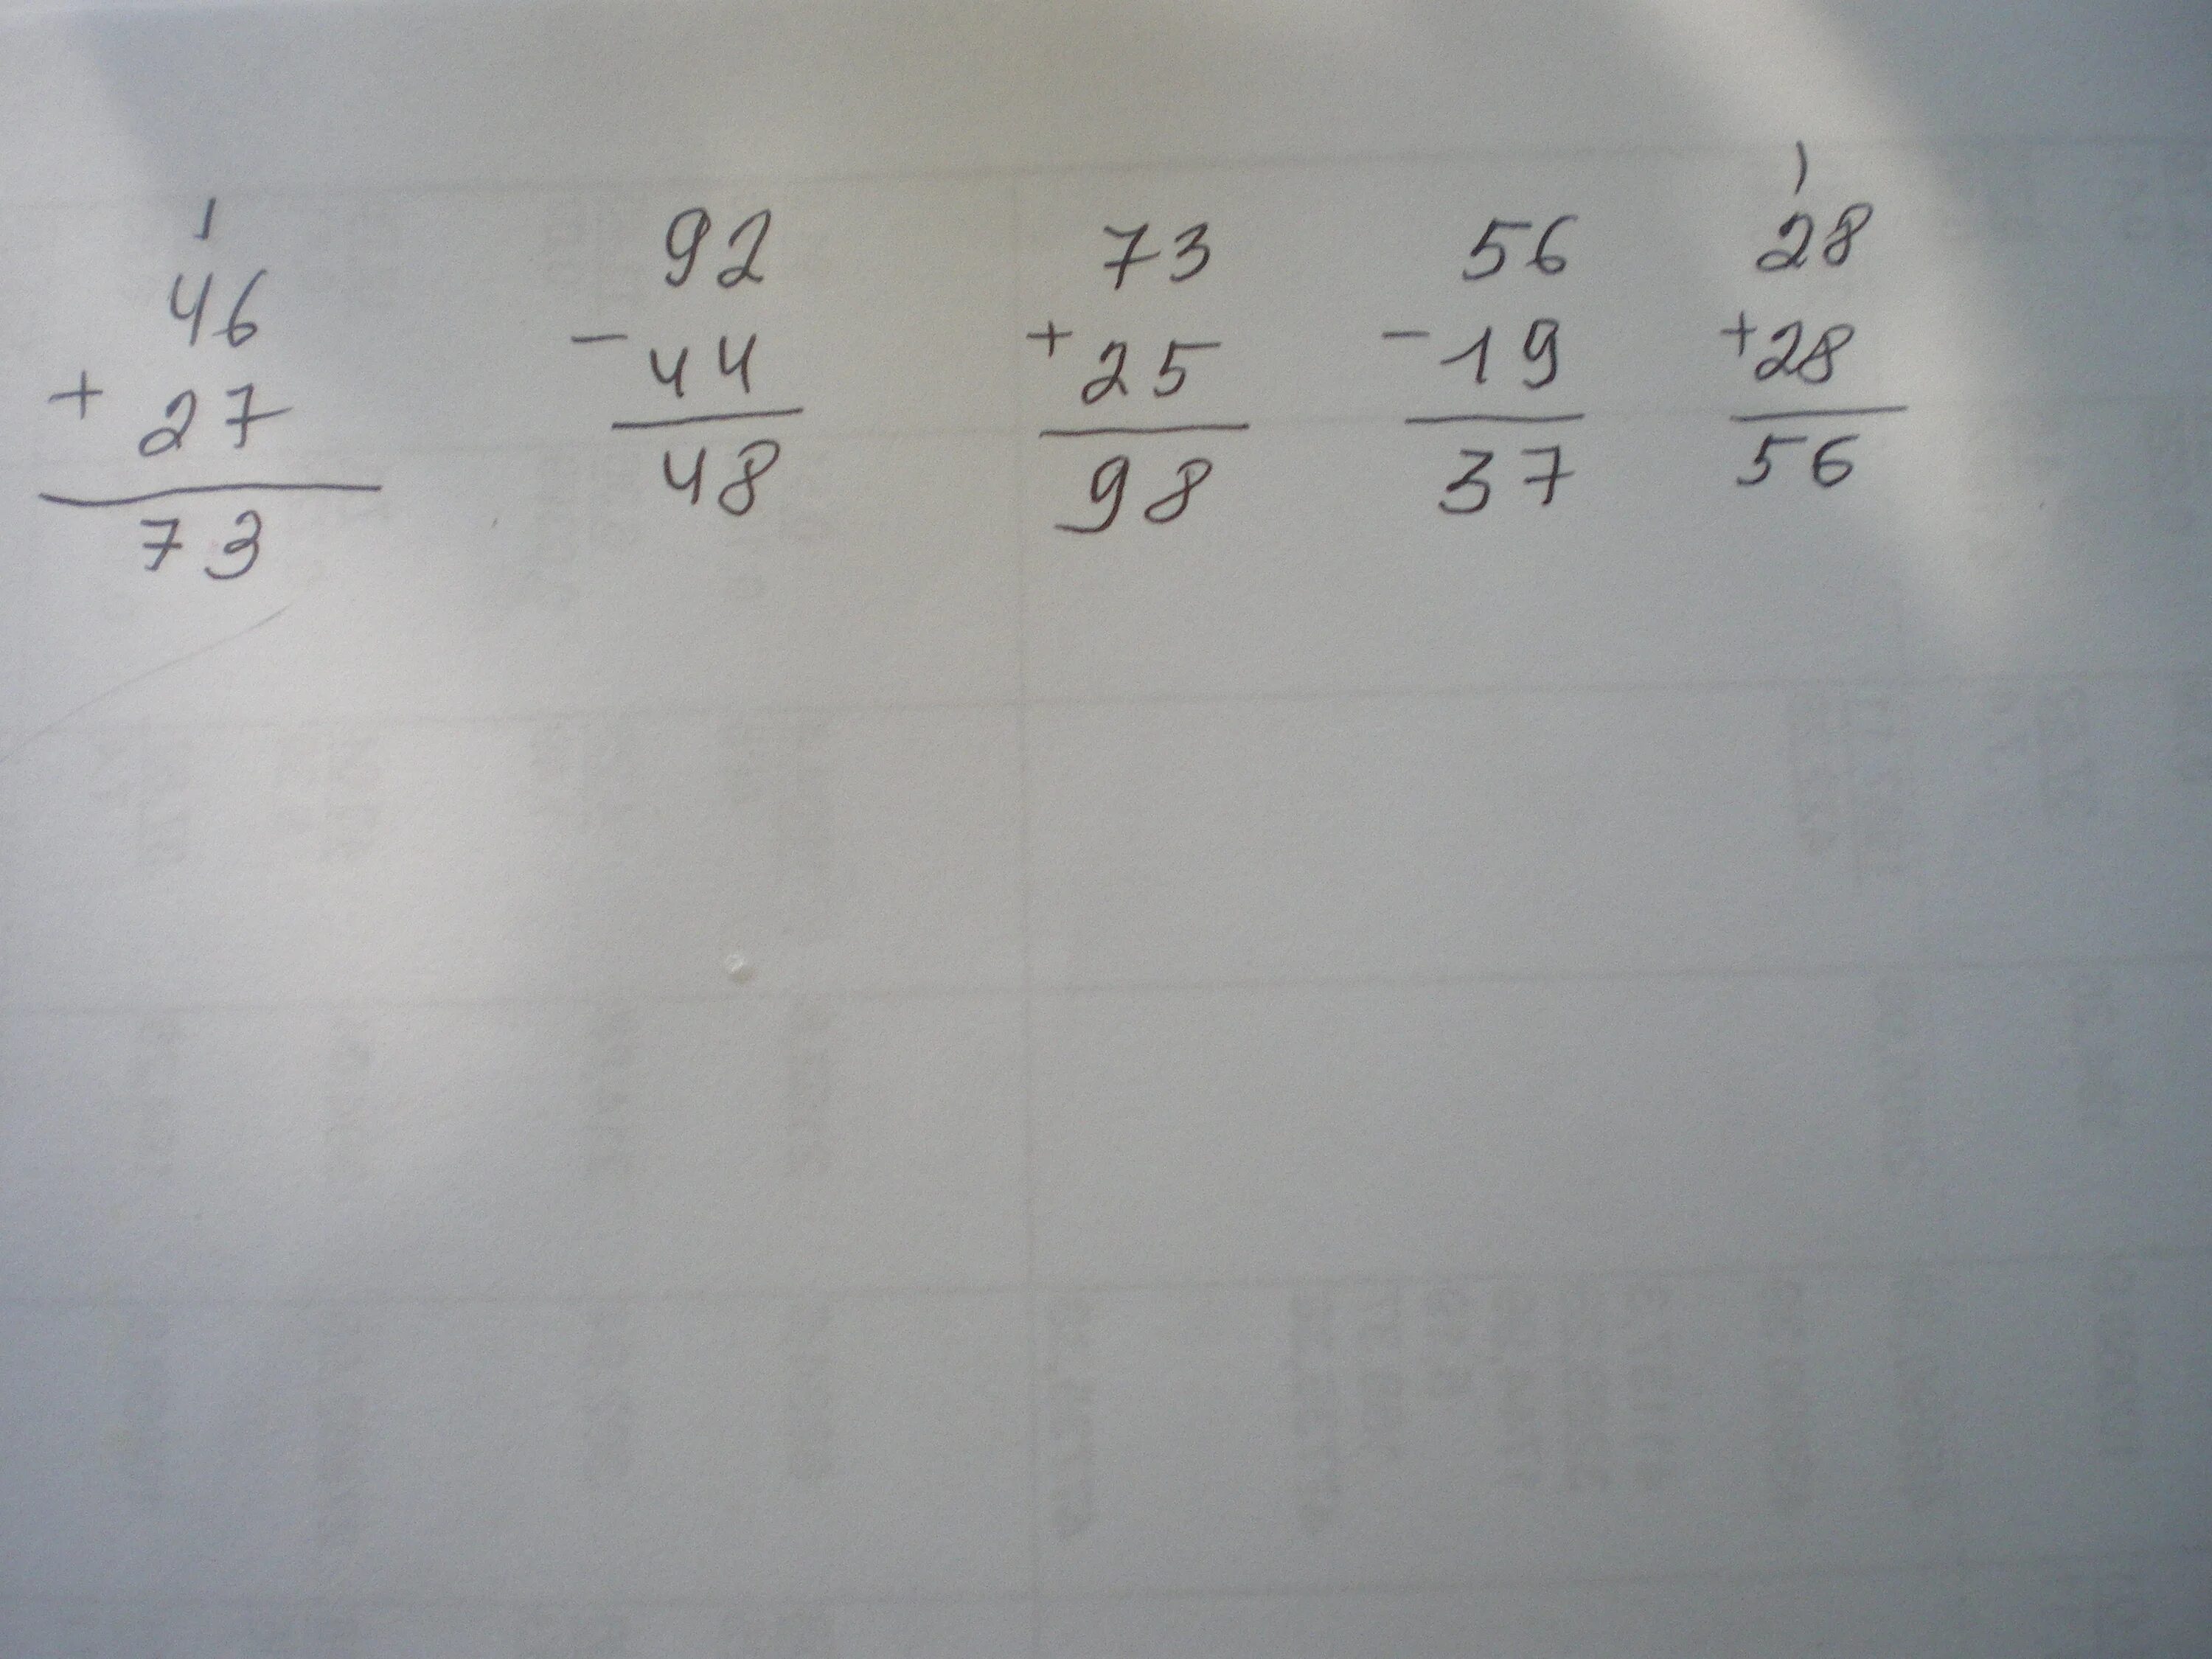 1
46
+ 27
73
92
- 44
48
73
+ 25
98
56
- 19
37
1
28
+ 28
56